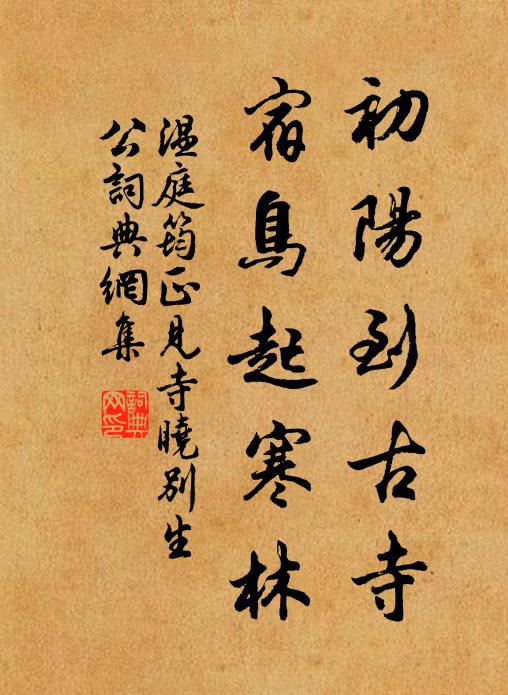 初陽到古寺
宿鳥起寒林
温庭筠正見寺曉別生
公詞典網集
詞典
网印